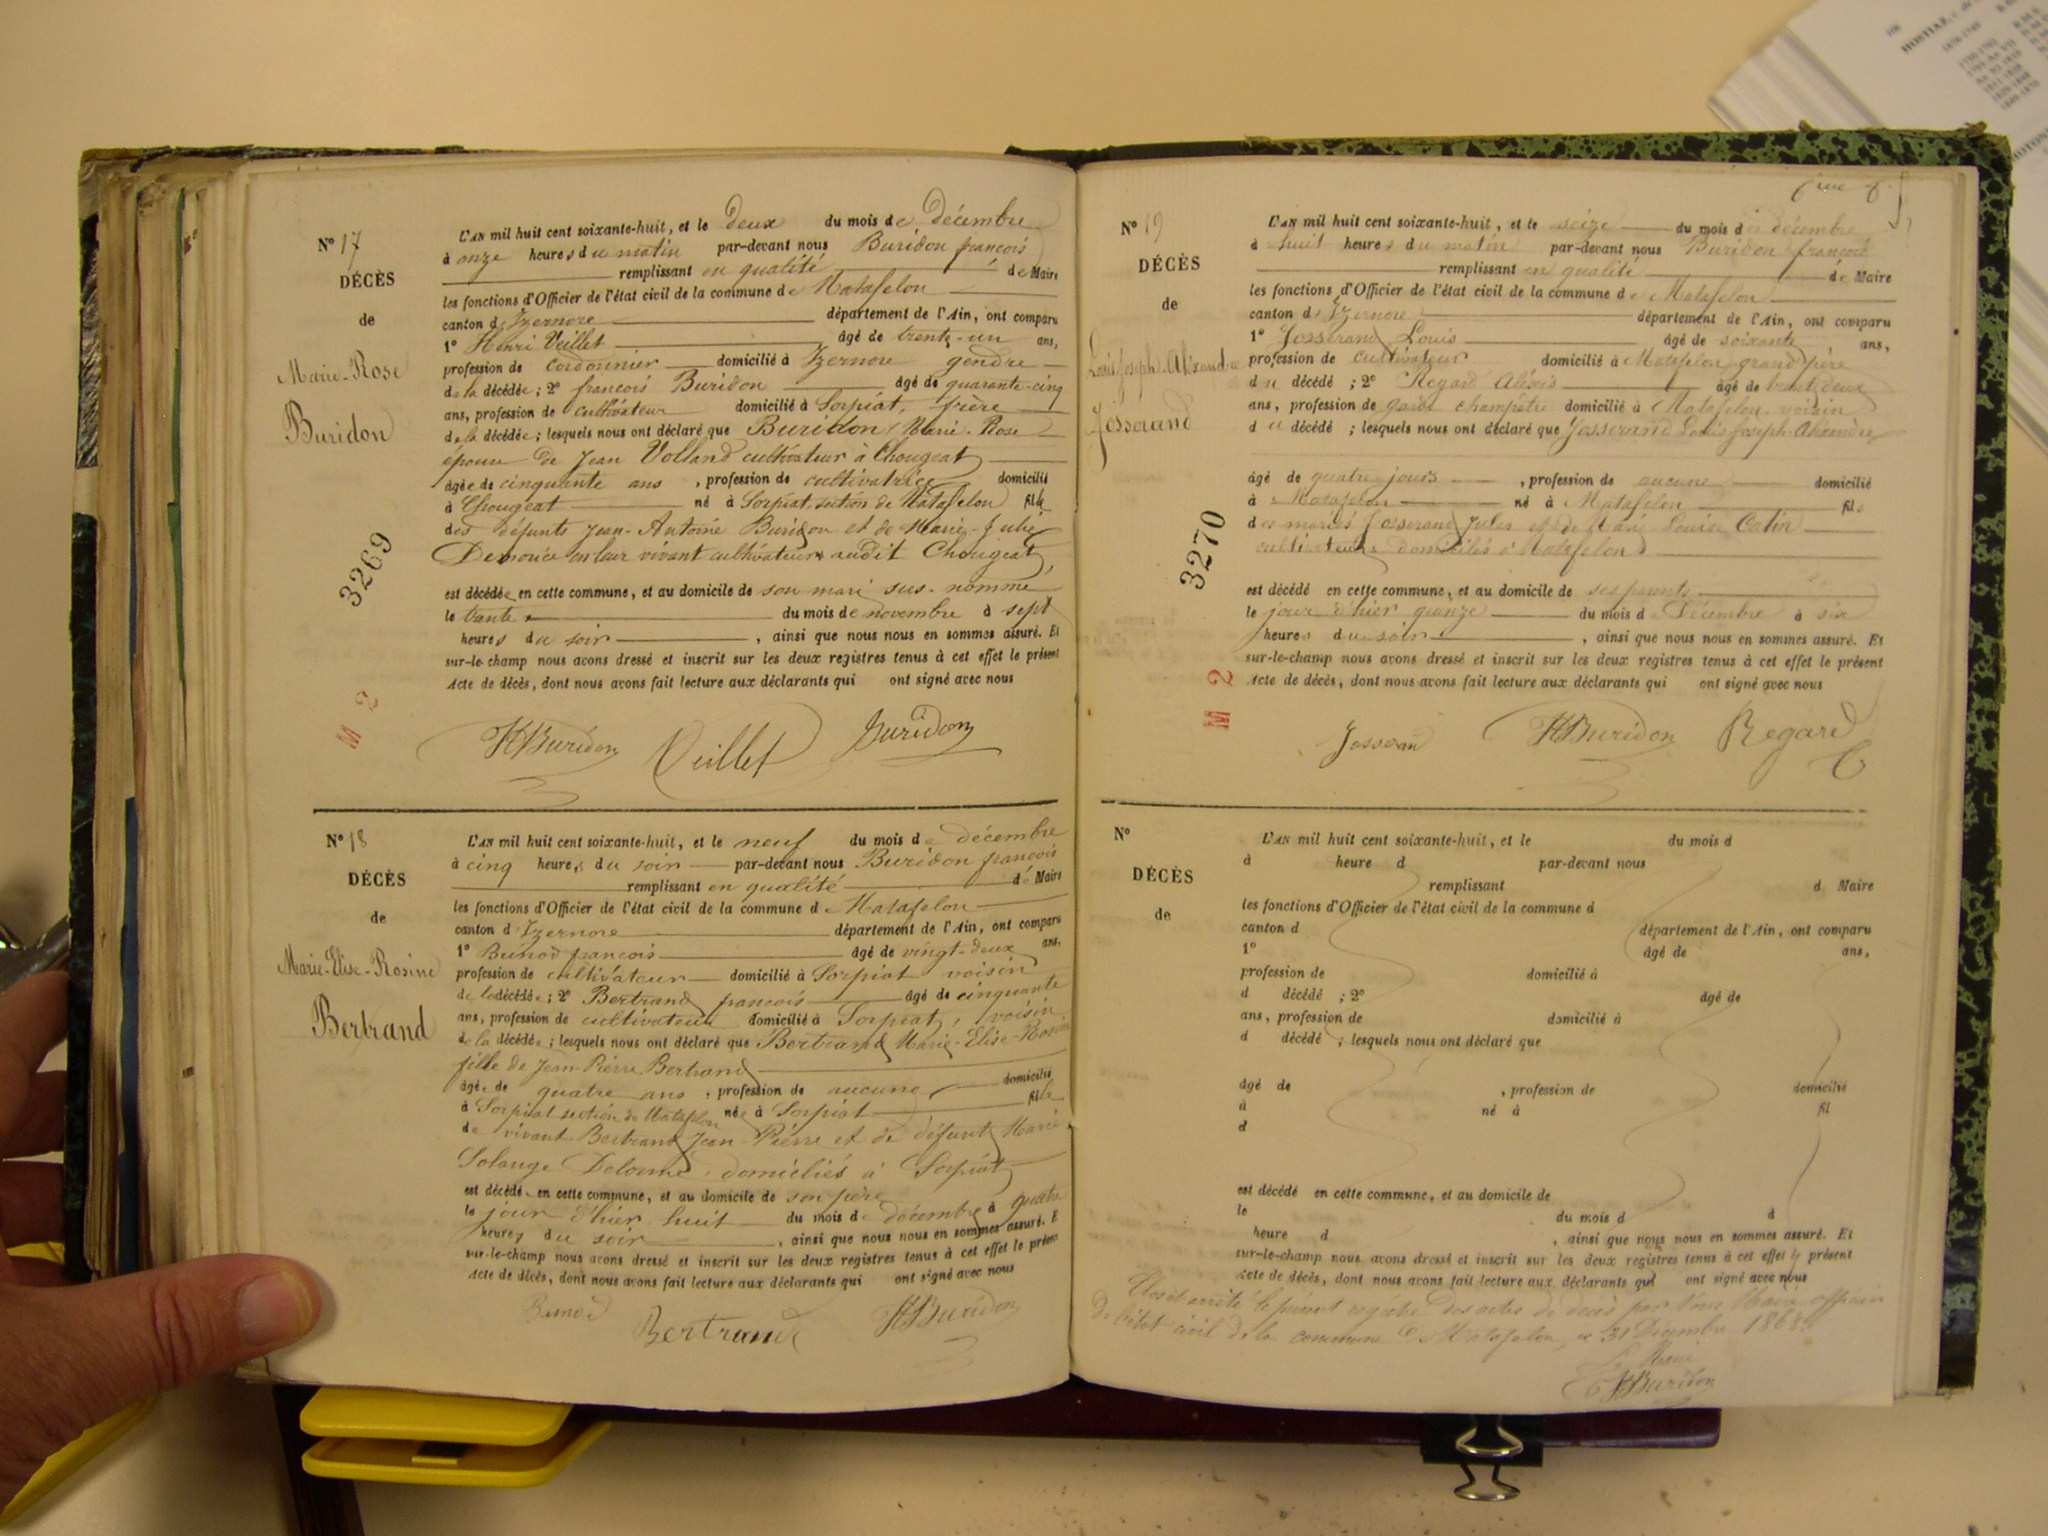 N° 17
DÉCÈS
de
Marie-Rose
Buridon
3269
M 2
L'AN mil huit cent soixante-huit, et le deux du mois de décembre
à onze heures du matin par-devant nous Buridon françois
remplissant en qualité de Maire
les fonctions d'Officier de l'état civil de la commune de Matafelon
canton d'Izernore département de l'Ain, ont comparu
1° Henri Veillet âgé de trente-un ans,
profession de cordonnier domicilié à Izernore gendre
de la décédée ; 2° françois Buridon âgé de quarante-cinq
ans, profession de cultivateur domicilié à Sorpiat, frère
de la décédée ; lesquels nous ont déclaré que Buridon Marie-Rose
épouse de Jean Volland cultivateur à Chougeat
âgée de cinquante ans , profession de cultivatrice domicilié
à Chougeat né à Sorpiat section de Matafelon fille
des défunts Jean-Antoine Buridon et de Marie-Julie
en leur vivant cultivateurs audit Chougeat,
est décédée en cette commune, et au domicile de son mari sus-nommé
le trente du mois de novembre à sept
heures du soir , ainsi que nous nous en sommes assuré. Et
sur-le-champ nous avons dressé et inscrit sur les deux registres tenus à cet effet le présent
Acte de décès, dont nous avons fait lecture aux déclarants qui ont signé avec nous
Buridon Veillet Buridon
N° 18
DÉCÈS
de
Marie-Elise-Rosine
Bertrand
L'AN mil huit cent soixante-huit, et le neuf du mois de décembre
à cinq heures du soir par-devant nous Buridon françois
remplissant en qualité de Maire
les fonctions d'Officier de l'état civil de la commune de Matafelon
canton d'Izernore département de l'Ain, ont comparu
1° Bunod françois âgé de vingt-deux ans,
profession de cultivateur domicilié à Sorpiat voisin
de la décédée ; 2° Bertrand françois âgé de cinquante
ans, profession de cultivateur domicilié à Sorpiat, voisin
de la décédée ; lesquels nous ont déclaré que Bertrand Marie-Elise-Rosine
fille de Jean-Pierre Bertrand
âgée de quatre ans , profession de aucune domicilié
à Sorpiat section de Matafelon née à Sorpiat fille
de vivant Bertrand Jean-Pierre et de défunte Marie
Solange Delorme domiciliés à Sorpiat
est décédée en cette commune, et au domicile de son père
le jour d'hier huit du mois de décembre à quatre
heures du soir , ainsi que nous nous en sommes assuré. E
sur-le-champ nous avons dressé et inscrit sur les deux registres tenus à cet effet le présent
Acte de décès, dont nous avons fait lecture aux déclarants qui ont signé avec nous
Bunod Bertrand Buridon
N° 19
DÉCÈS
de
Louis-Joseph-Alexandre
Josserand
3270
M 2
L'AN mil huit cent soixante-huit, et le seize du mois de décembre
à huit heures du matin par-devant nous Buridon françois
remplissant en qualité de Maire
les fonctions d'Officier de l'état civil de la commune de Matafelon
canton d'Izernore département de l'Ain, ont comparu
1° Josserand Louis âgé de soixante ans,
profession de cultivateur domicilié à Matafelon grand père
du décédé ; 2° Regard Alexis âgé de trente deux
ans, profession de garde champêtre domicilié à Matafelon voisin
du décédé ; lesquels nous ont déclaré que Josserand Louis Joseph Alexandre
âgé de quatre jours , profession de aucune domicilié
à Matafelon né à Matafelon fils
des mariés Josserand Jules et de Marie Louise Catin
cultivateurs domiciliés à Matafelon
est décédé en cette commune, et au domicile de ses parents
le jour d'hier quinze du mois de Décembre à six
heures du soir , ainsi que nous nous en sommes assuré. Et
sur-le-champ nous avons dressé et inscrit sur les deux registres tenus à cet effet le présent
Acte de décès, dont nous avons fait lecture aux déclarants qui ont signé avec nous
Josseran Buridon Regard
N°
DÉCÈS
de
L'AN mil huit cent soixante-huit, et le du mois d
à heure d par-devant nous
remplissant d Maire
les fonctions d'Officier de l'état civil de la commune d
canton d département de l'Ain, ont comparu
1° âgé de ans,
profession de domicilié à
d décédé ; 2° âgé de
ans, profession de domicilié à
d décédé ; lesquels nous ont déclaré que
âgé de , profession de domicilié
à né à fil
d
est décédé en cette commune, et au domicile de
le du mois d à
heure d , ainsi que nous nous en sommes assuré. Et
sur-le-champ nous avons dressé et inscrit sur les deux registres tenus à cet effet le présent
Acte de décès, dont nous avons fait lecture aux déclarants qui ont signé avec nous
Clos et arrêté le présent registre des actes de décès par Nous Maire officier
de l'état civil de la commune de Matafelon, le 31 Décembre 1868
Le Maire
Buridon